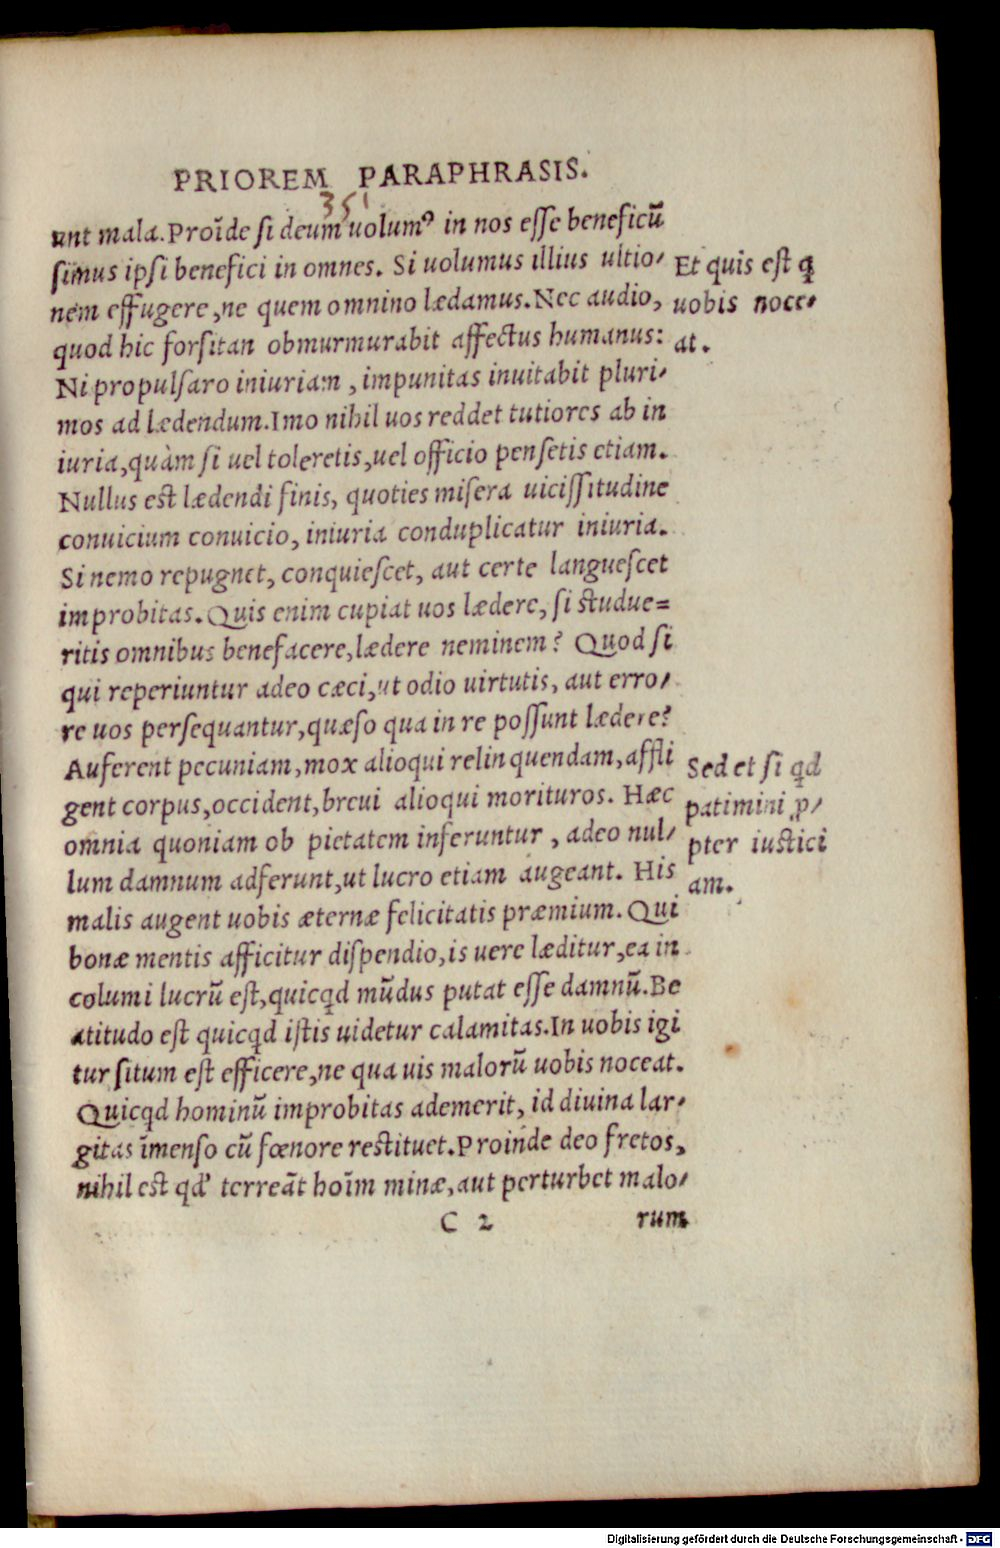 PRIOREM PARAPHRASIS.
351
unt mala. Proīde si deum uolumꝰ in nos esse beneficū
simus ipsi benefici in omnes. Si uolumus illius ultio-
nem effugere, ne quem omnino lædamus. Nec audio,
quod hic forsitan obmurmurabit affectus humanus:
Ni propulsaro iniuriam, impunitas inuitabit pluri-
mos ad lædendum. Imo nihil uos reddet tutiores ab in
iuria, quàm si uel toleretis, uel officio pensetis etiam.
Nullus est lædendi finis, quoties misera uicissitudine
conuicium conuicio, iniuria conduplicatur iniuria.
Si nemo repugnet, conquiescet, aut certe languescet
improbitas. Quis enim cupiat uos lædere, si studue=
ritis omnibus benefacere, lædere neminem? Quod si
qui reperiuntur adeo cæci, ut odio uirtutis, aut erro-
re uos persequantur, quæso qua in re possunt lædere?
Auferent pecuniam, mox alioqui relinquendam, affli
gent corpus, occident, breui alioqui morituros. Hæc
omnia quoniam ob pietatem inferuntur, adeo nul-
lum damnum adferunt, ut lucro etiam augeant. His
malis augent uobis æternæ felicitatis præmium. Qui
bonæ mentis afficitur dispendio, is uere læditur, ea in
columi lucrū est, quicꝗd mūdus putat esse damnū. Be
atitudo est quicꝗd istis uidetur calamitas. In uobis igi
tur situm est efficere, ne qua uis malorū uobis noceat.
Quicꝗd hominū improbitas ademerit, id diuina lar-
gitas īmenso cū fœnore restituet. Proinde deo fretos,
nihil est qď terreāt hoīm minæ, aut perturbet malo-
C 2 rum
Et quis est ꝗ
uobis noce-
at.
Sed et si ꝗd
patimini ꝓ-
pter iustici
am.
Digitalisierung gefördert durch die Deutsche Forschungsgemeinschaft - DFG